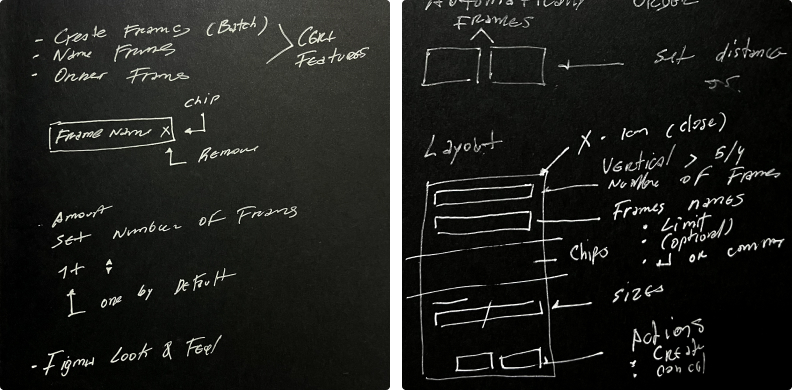 - Create Frames (Batch)
- Name Frames
- Owner Frame
Core
Features
Chip
Frame Name X
Remove
Amount
Set Number of Frames
1+
one by Default
- Figma Look & Feel
Automatically
Frames
Set distance
Layout
X - Icon (close)
Vertical > 5/4
Number of Frames
Frames names
• Limit
• (optional)
• ↵ or comma
Chips
Sizes
Actions
• Create
• Cancel